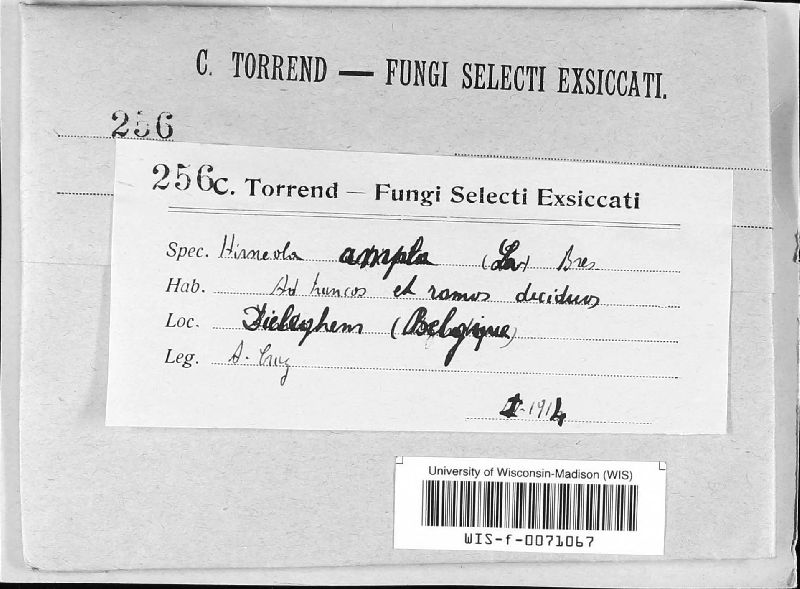 C. TORREND — FUNGI SELECTI EXSICCATI.
256
256 C. Torrend — Fungi Selecti Exsiccati
Spec. Hirneola ampla Bres
Hab. Ad truncos et ramos deciduos
Loc. Dieleghem (Belgique)
Leg. A. Cruz
1914
University of Wisconsin-Madison (WIS)
WIS-f-0071067